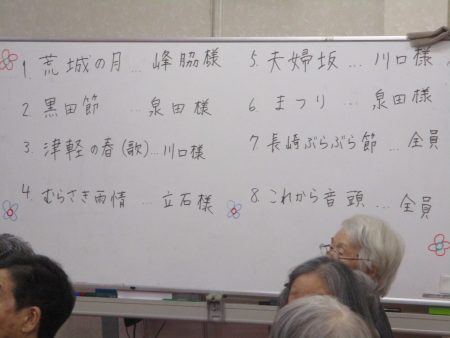 1. 荒城の月 … 峰脇様
2. 黒田節 … 泉田様
3. 津軽の春(歌)…川口様
4. むらさき雨情 … 立石様
5. 夫婦坂 … 川口様
6. まつり … 泉田様
7. 長崎ぶらぶら節 … 全員
8. これから音頭 … 全員